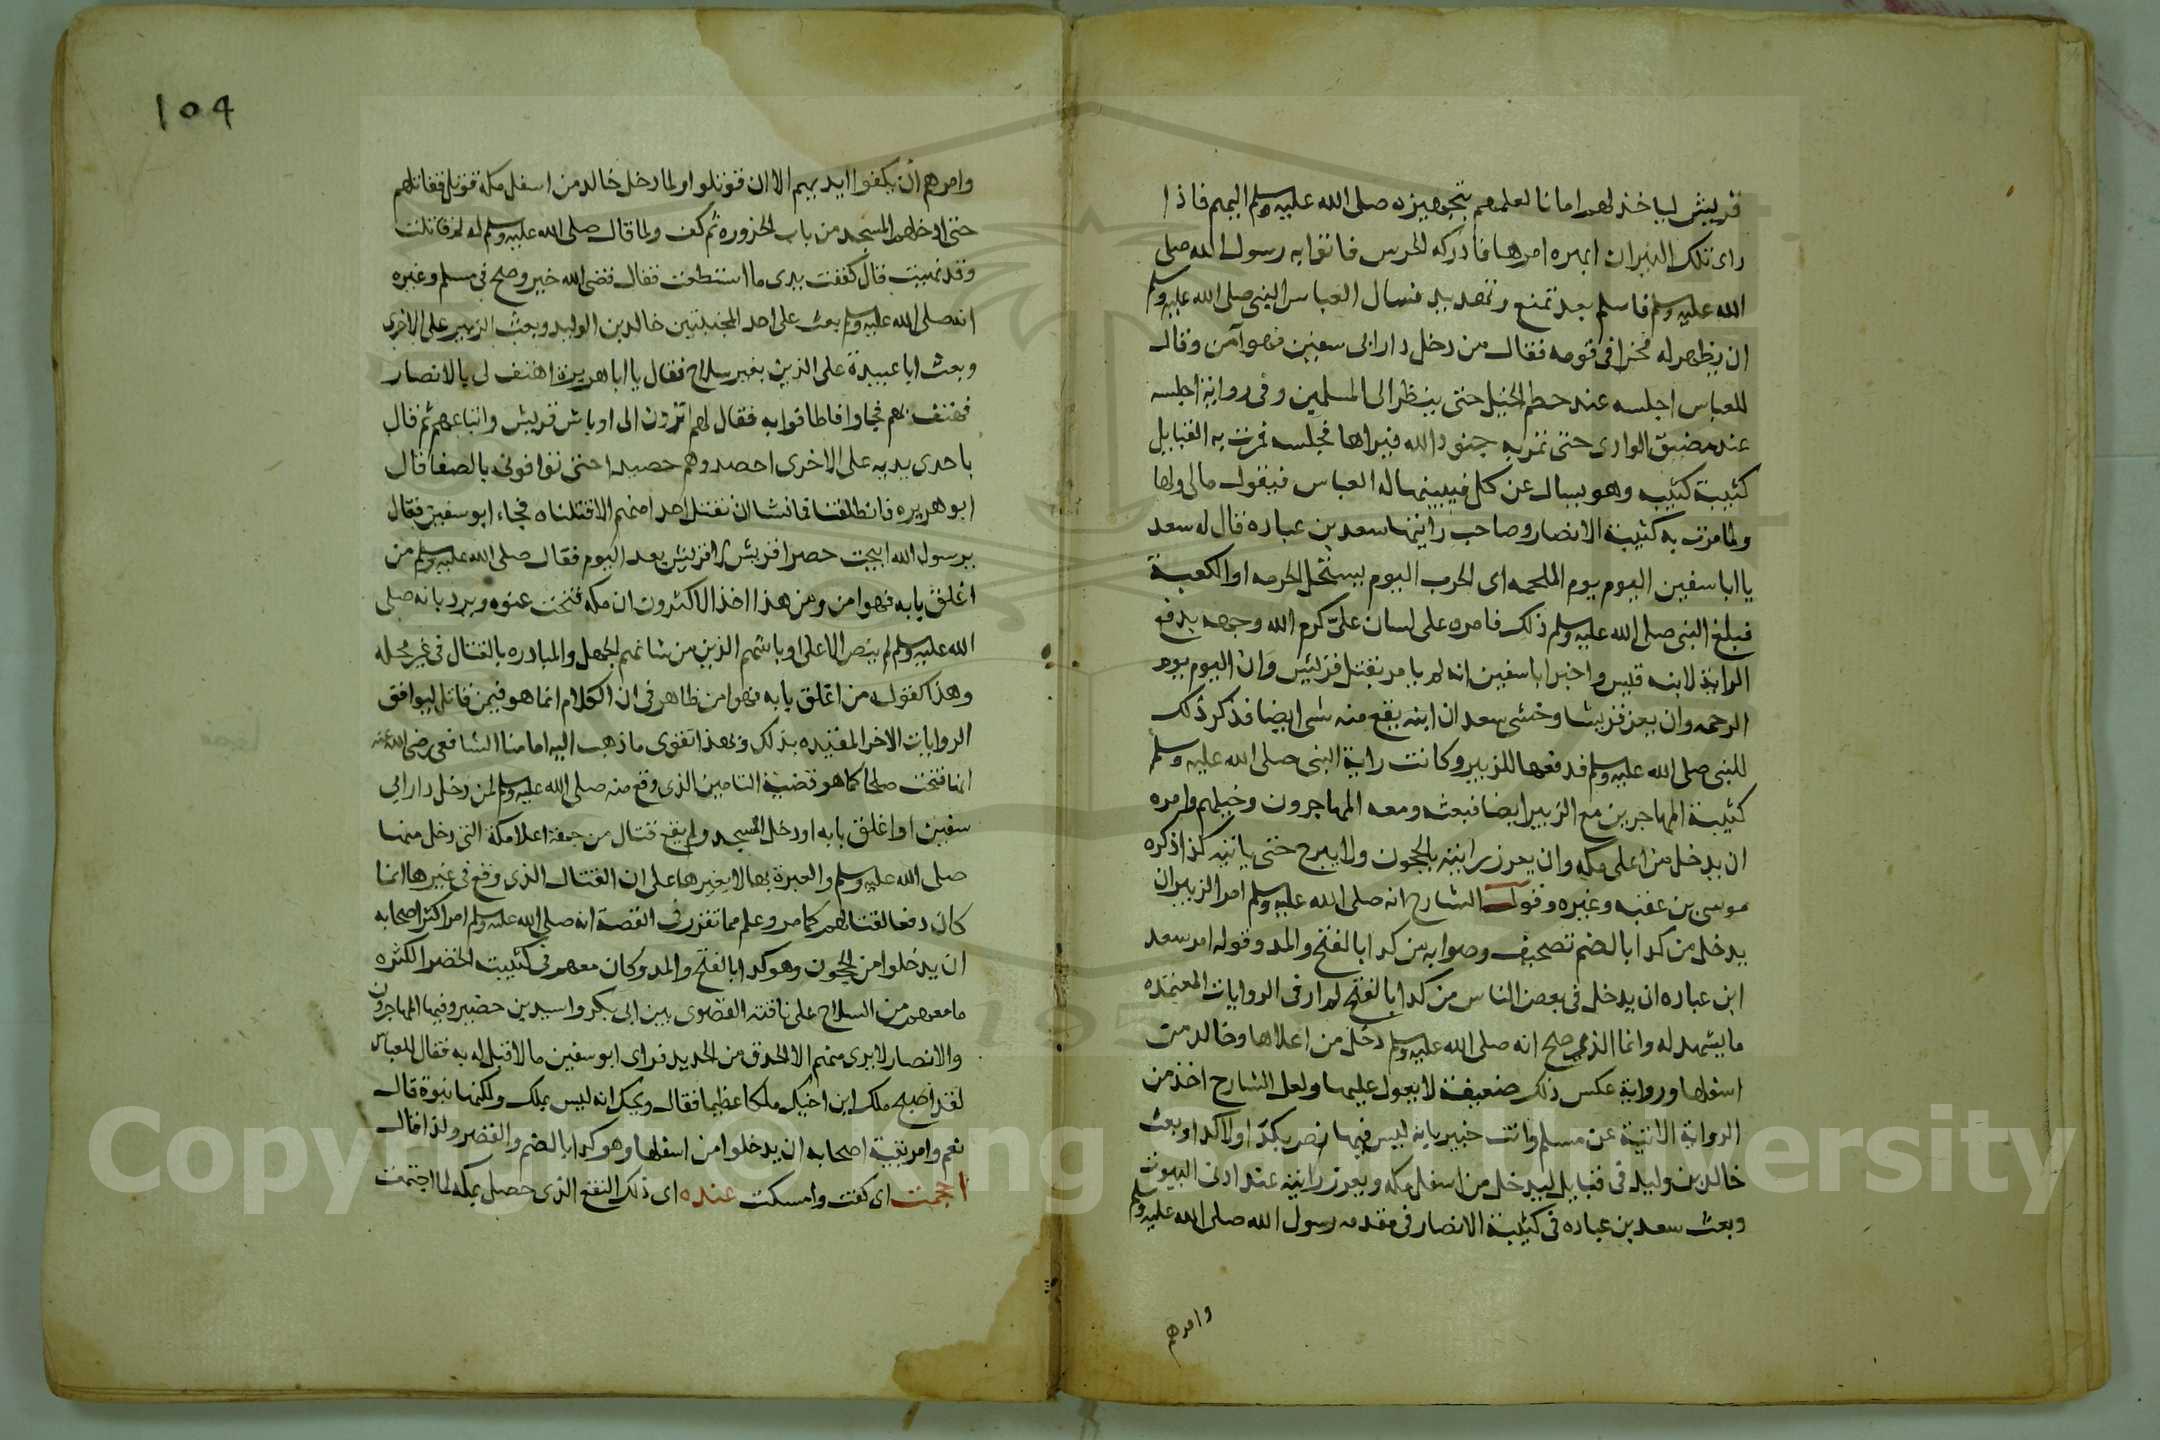 قريش لياخذ لهم امانا لعلمهم بتجهيزه صلى الله عليه وسلم اليهم فاذا
راى تلك النيران ابهره امرها فادركه الحرس فاتوا به رسول الله صلى
الله عليه وسلم فاسلم بعد تمنع وتهديد فسال العباس النبي صلى الله عليه وسلم
ان يظهر له فخرا في قومه فقال من دخل دار ابى سفين فهو آمن وقال
للعباس اجلسه عند حطم الخيل حتى ينظر الى المسلمين وفى رواية اجلسه
عند مضيق الوادى حتى تمر به جنود الله فيراها فجلسه فمرت به القبايل
كتيبة كتيبه وهو يسال عن كل فيبينها له العباس فيقول مالى ولها
ولما مرت به كتيبة الانصار وصاحب رايتها سعد بن عباده قال له سعد
يا ابا سفين اليوم يوم الملحمه اى الحرب اليوم يستحل الحرمه او الكعبة
فبلغ النبى صلى الله عليه وسلم ذلك فامره على لسان علىّ كرم الله وجهه بدفع
الراية لابنه قيس واخبر ابا سفين انه لم يامر بقتل قريش وان اليوم يوم
الرحمه وان يعز قريشا وخشى سعد ان ابنه يقع منه شى ايضا فذكر ذلك
للنبى صلى الله عليه وسلم فدفعها للزبير وكانت راية النبى صلى الله عليه وسلم
كتيبة المهاجرين مع الزبير ايضا فبعثه ومعه المهاجرون وخيلهم وامره
ان يدخل من اعلى مكه وان يغرز رايته بالحجون ولا يبرح حتى ياتيه كذا ذكره
موسى بن عقبه وغيره وقول الشارح انه صلى الله عليه وسلم امر الزبير ان
يدخل من كدا بالضم تصحيف وصوابه من كدا بالفتح والمد وقوله امر سعد
ابن عباده ان يدخل فى بعض الناس من كدا بالفتح لم ار فى الروايات المعتمده
ما يشهد له وانما الذى صح انه صلى الله عليه وسلم دخل من اعلاها وخالد من
اسفلها ورواية عكس ذلك ضعيفة لا يعول عليها ولعل الشارح اخذ من
الرواية الاتية عن مسلم وانت خبير بانه ليس فيها نصر بكدّا ولا كدا وبعث
خالد بن وليد فى قبايل ليدخل من اسفل مكه ويغرز رايته عند ادنى البيوت
وبعث سعد بن عباده فى كتيبة الانصار فى مقدمه رسول الله صلى الله عليه وسلم
وامرهم
١٥٤
وامرهم ان يكفوا ايديهم الا ان قوتلوا ولما دخل خالد من اسفل مكة قوتل فقاتلهم
حتى ادخلهم المسجد من باب الحزوره ثم كف ولما قال صلى الله عليه وسلم له لم قاتلت
وقد نهيت قال كففت يدى ما استطعت فقال قضى الله خير وصح فى مسلم وغيره
انه صلى الله عليه وسلم بعث على احد المجنبتين خالد بن الوليد وبعث الزبير على الاخرى
وبعث ابا عبيدة على الذين بغير سلاح فقال يا ابا هريرة اهتف لى بالانصار
فهتف بهم فجاوا فاطافوا به فقال لهم اترون الى اوباش قريش واتباعهم ثم قال
باحدى يديه على الاخرى احصدوهم حصيدا حتى توافونى بالصفا قال
ابو هريره فانطلقنا فما نشا ان نقتل احدا منهم الا قتلناه فجاء ابو سفين فقال
يرسول الله ابيحت حصرا قريش لا قريش بعد اليوم فقال صلى الله عليه وسلم من
اغلق بابه فهو امن ومن هذا اخذ الاكثرون ان مكه فتحت عنوه ويرد بانه صلى
الله عليه وسلم لم ينص الا على اوباشهم الذين من شانهم الجهل والمبادره بالقتال فى غير محله
وهذا كقوله من اغلق بابه فهو امن ظاهر فى ان الكلام انما هو فيمن قاتل ليوافق
الروايات الاخر المقيده بذلك وبهذا تقوى ما ذهب اليه امامنا الشافعى رضى الله عنه
انها فتحت صلحا كما هو قضية التامين الذى وقع منه صلى الله عليه وسلم لمن دخل دار ابى
سفين او اغلق بابه او دخل المسجد ولم يقع قتال من جهة اعلا مكة التى دخل منها
صلى الله عليه وسلم والعبرة بها لا بغيرها على ان القتال الذى وقع فى غيرها انما
كان دفعا لقتالهم كما مر وعلم مما تقرر فى القصة انه صلى الله عليه وسلم امر اكثر اصحابه
ان يدخلوا من الحجون وهو كدا بالفتح والمد وكان معهم فى كتيبت الخضرا لكثره
ما معهم من السلاح على ناقته القصوى بين ابى بكر واسيد بن حضير وفيها المهاجرون
والانصار لا يرى منهم الا الحدق من الحديد فراى ابو سفين ما لا قبل له به فقال للعباس
لقد اصبح ملك ابن اخيك ملكا عظيما فقال ويحك انه ليس بملك ولكنها نبوة قال
نعم وامر بقية اصحابه ان يدخلوا من اسفلها وهو كدا بالضم والقصر ولذا قال
احجمت اى كفت وامسكت عنده اى ذلك النقع الذى حصل بمكه لما اجتمعت
Copyright © King Saud University